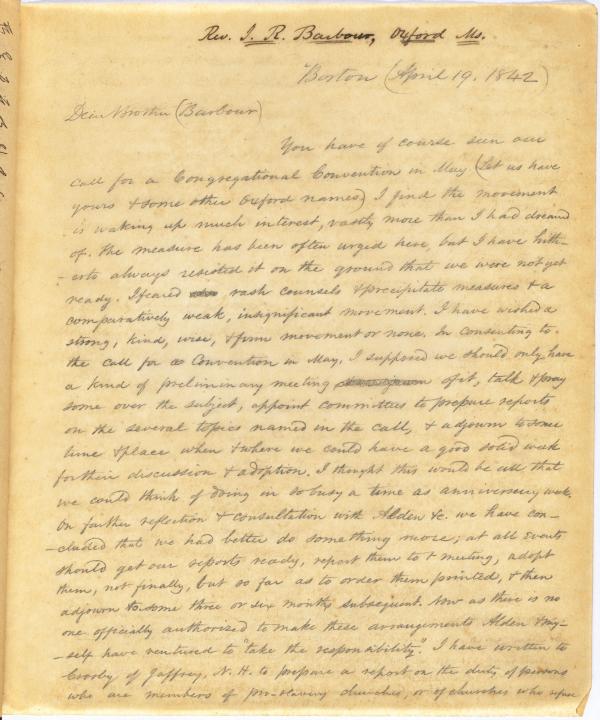 Rev. I. R. Barbour, Oxford Ms.
Boston (April 19. 1842)
Dear Brother (Barbour)
You have of course seen our
call for a Congregational Convention in May (Let us have
yours & some other Oxford names) I find the movement
is waking up much interest, vastly more than I had dreamed
of. The measure has been often urged here, but I have hith-
-erto always resisted it on the ground that we were not yet
ready. I feared rash counsels & precipitate measures & a
comparatively weak, insignificant movement. I have wished a
strong, kind, wise, & firm movement or none. In consenting to
the call for a Convention in May, I supposed we should only have
a kind of preliminary meeting of it, talk & pray
some over the subject, appoint committees to prepare reports
on the several topics named in the call, & adjourn to some
time & place when & where we could have a good solid week
for their discussion & adoption. I thought this would be all that
we could think of doing in so busy a time as anniversary week.
On further reflection & consultation with Alden &c. we have con-
-cluded that we had better do something more; at all events
should get our reports ready, report them to meeting, adopt
them, not finally, but so far as to order them printed, & then
adjourn to some three or six months subsequent. Now as there is no
one officially authorized to make these arrangements Alden & my-
-self have ventured to "take the responsibility". I have written to
Crosby of Jaffrey, N. H. to prepare a report on the duty of persons
who are members of pro-slavery churches, or of churches who refuse